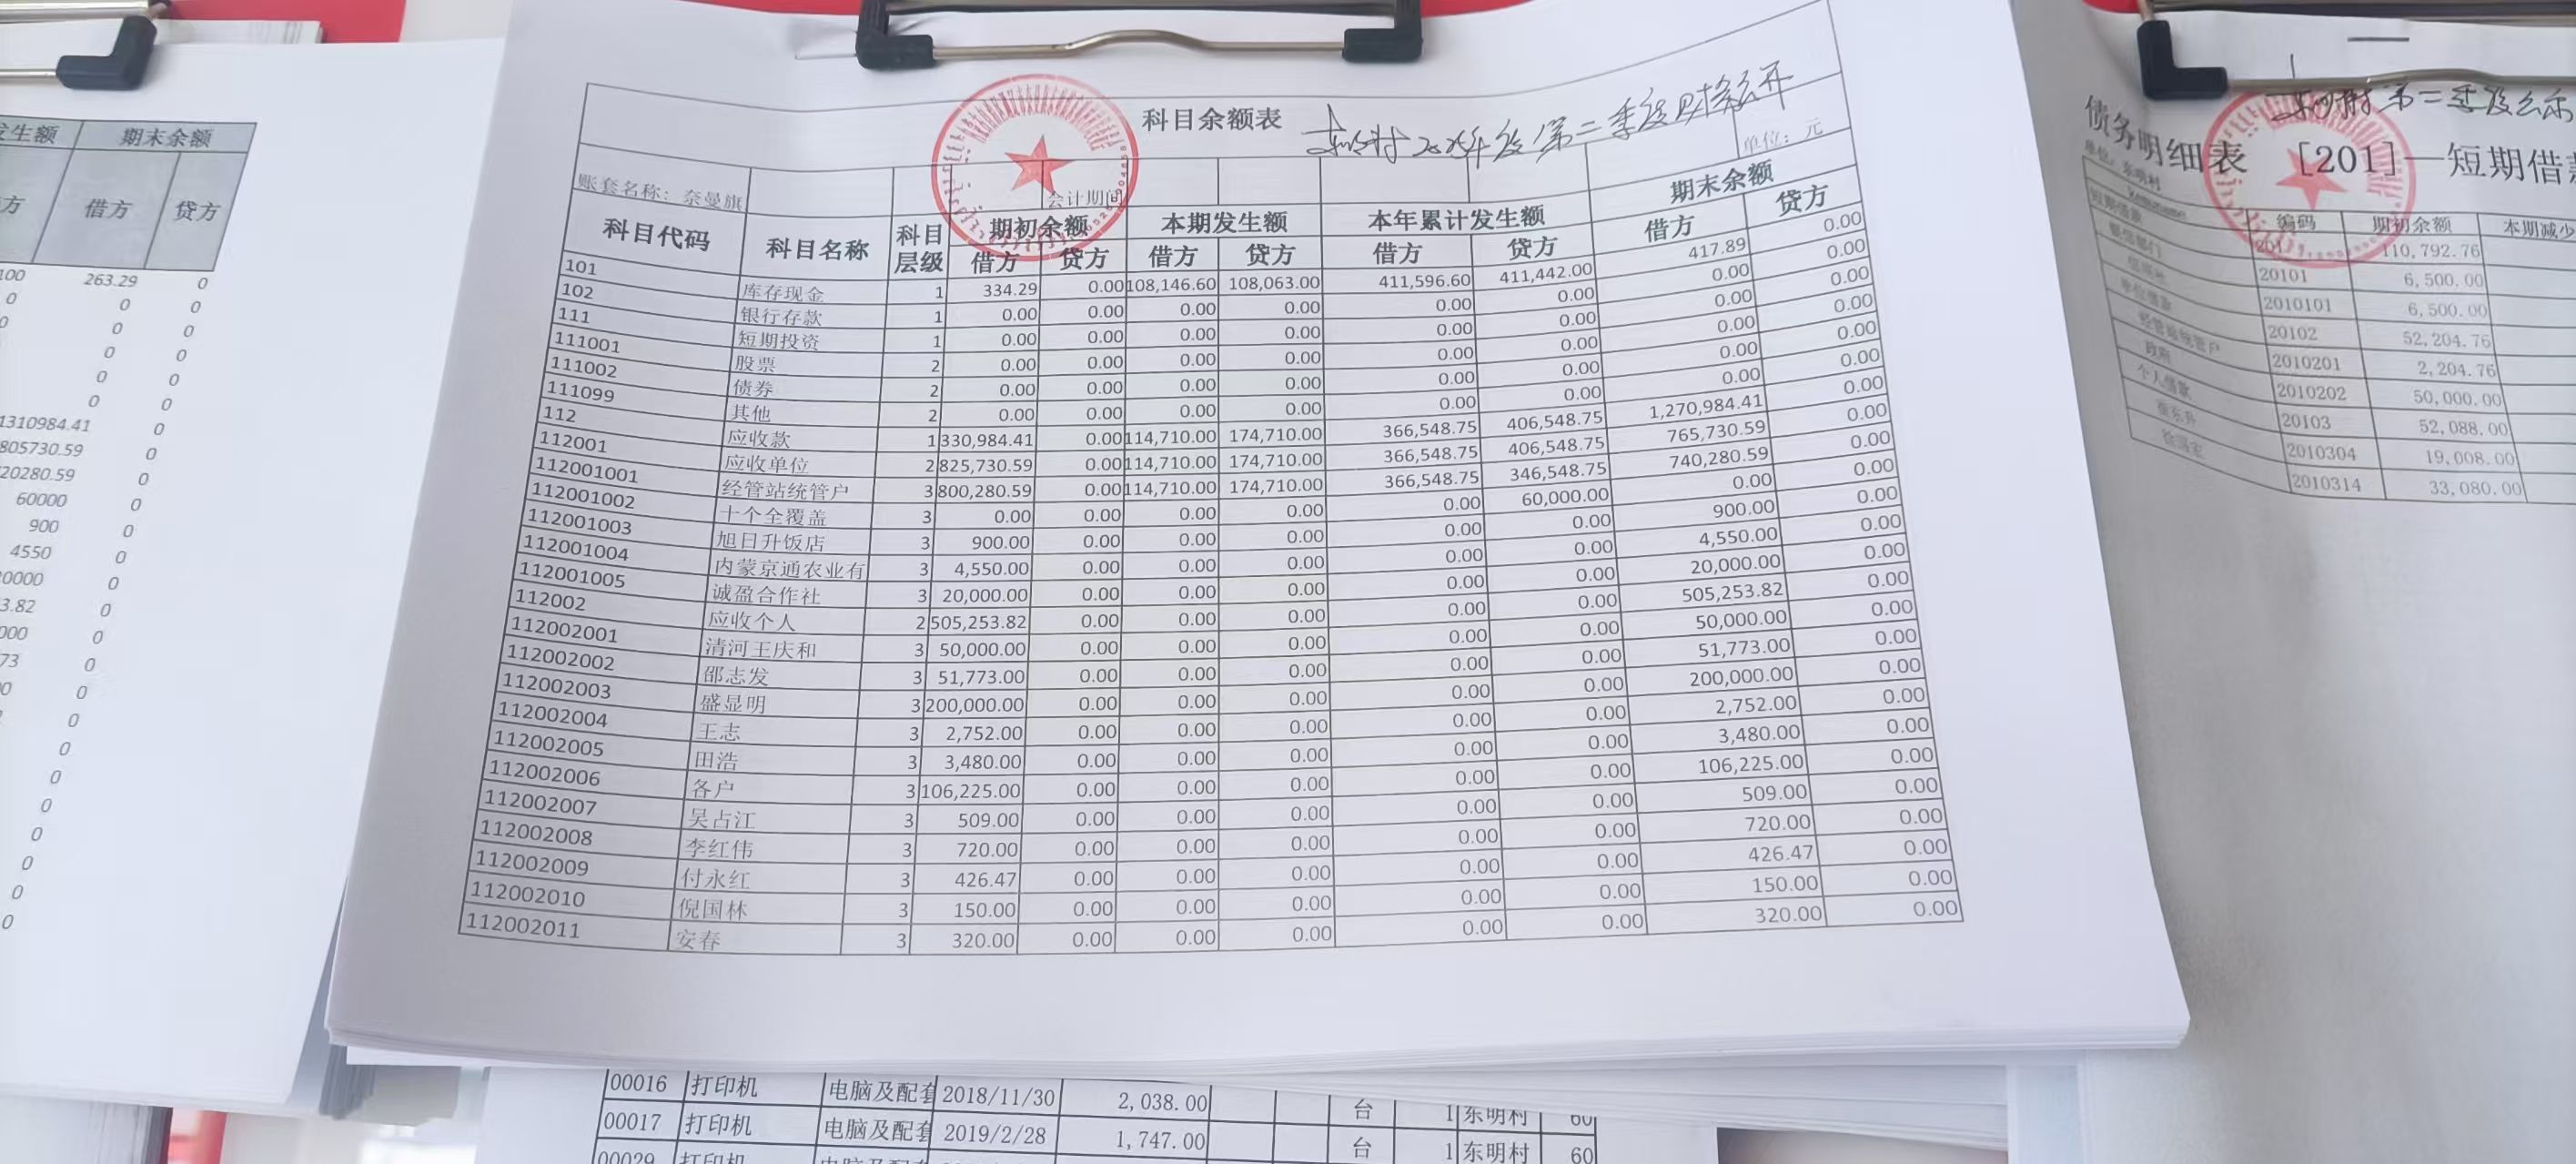 发生额 期末余额
方 借方 贷方
100 263.29 0
0 0 0
0 0 0
0 0
0 0
0 0
1310984.41 0
805730.59 0
20280.59 0
60000 0
900 0
4550 0
0000 0
3.82 0
000 0
73 0
0 0
0
0
0
0
0
0
0
0
科目余额表 2025年度第二季度财务公开
单位：元
账套名称：奈曼旗 会计期间
科目代码 科目名称 科目层级 期初余额 本期发生额 本年累计发生额 期末余额
借方 贷方 借方 贷方 借方 贷方 借方 贷方
101 库存现金 1 334.29 0.00 108,146.60 108,063.00 411,596.60 411,442.00 417.89 0.00
102 银行存款 1 0.00 0.00 0.00 0.00 0.00 0.00 0.00 0.00
111 短期投资 1 0.00 0.00 0.00 0.00 0.00 0.00 0.00 0.00
111001 股票 2 0.00 0.00 0.00 0.00 0.00 0.00 0.00 0.00
111002 债券 2 0.00 0.00 0.00 0.00 0.00 0.00 0.00 0.00
111099 其他 2 0.00 0.00 0.00 0.00 0.00 0.00 0.00 0.00
112 应收款 1 330,984.41 0.00 114,710.00 174,710.00 366,548.75 406,548.75 1,270,984.41 0.00
112001 应收单位 2 825,730.59 0.00 114,710.00 174,710.00 366,548.75 406,548.75 765,730.59 0.00
112001001 经管站统管户 3 800,280.59 0.00 114,710.00 174,710.00 366,548.75 346,548.75 740,280.59 0.00
112001002 十个全覆盖 3 0.00 0.00 0.00 0.00 0.00 60,000.00 0.00 0.00
112001003 旭日升饭店 3 900.00 0.00 0.00 0.00 0.00 0.00 900.00 0.00
112001004 内蒙京通农业有 3 4,550.00 0.00 0.00 0.00 0.00 0.00 4,550.00 0.00
112001005 诚盈合作社 3 20,000.00 0.00 0.00 0.00 0.00 0.00 20,000.00 0.00
112002 应收个人 2 505,253.82 0.00 0.00 0.00 0.00 0.00 505,253.82 0.00
112002001 清河王庆和 3 50,000.00 0.00 0.00 0.00 0.00 0.00 50,000.00 0.00
112002002 邵志发 3 51,773.00 0.00 0.00 0.00 0.00 0.00 51,773.00 0.00
112002003 盛显明 3 200,000.00 0.00 0.00 0.00 0.00 0.00 200,000.00 0.00
112002004 王志 3 2,752.00 0.00 0.00 0.00 0.00 0.00 2,752.00 0.00
112002005 田浩 3 3,480.00 0.00 0.00 0.00 0.00 0.00 3,480.00 0.00
112002006 各户 3 106,225.00 0.00 0.00 0.00 0.00 0.00 106,225.00 0.00
112002007 吴占江 3 509.00 0.00 0.00 0.00 0.00 0.00 509.00 0.00
112002008 李红伟 3 720.00 0.00 0.00 0.00 0.00 0.00 720.00 0.00
112002009 付永红 3 426.47 0.00 0.00 0.00 0.00 0.00 426.47 0.00
112002010 倪国林 3 150.00 0.00 0.00 0.00 0.00 0.00 150.00 0.00
112002011 安春 3 320.00 0.00 0.00 0.00 0.00 0.00 320.00 0.00
第二季度公示
债务明细表 [201]—短期借款
单位：东明村
编码 期初余额 本期减少
短期借款 201 110,792.76
20101 6,500.00
2010101 6,500.00
单位借款 20102 52,204.76
经管站统管户 2010201 2,204.76
政府 2010202 50,000.00
个人借款 20103 52,088.00
2010304 19,008.00
2010314 33,080.00
00016 打印机 电脑及配套 2018/11/30 2,038.00 台 1 东明村 60
00017 打印机 电脑及配套 2019/2/28 1,747.00 台 1 东明村 60
00029 打印机